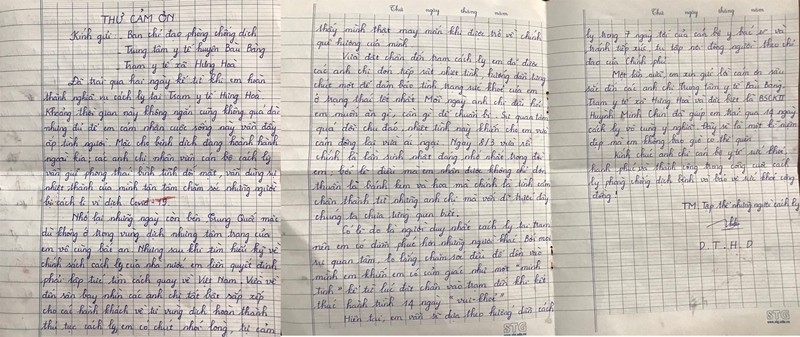 THƯ CẢM ƠN
Kính gửi: Ban chỉ đạo phòng chống dịch
Trung tâm y tế huyện Bàu Bàng
Trạm y tế xã Hưng Hoà
Đã trải qua hai ngày kể từ khi em hoàn
thành nghĩa vụ cách ly tại Trạm y tế Hưng Hoà.
Khoảng thời gian này không ngắn cũng không quá dài
nhưng đủ để em cảm nhận cuộc sống này vẫn đầy
ắp tình người. Mặc cho bệnh dịch đang hoành hành
ngoài kia, các anh chị nhân viên cán bộ cách ly
vẫn giữ phong thái bình tĩnh đối mặt, vẫn dùng sự
nhiệt thành của mình tận tâm chăm sóc những người
bị cách ly vì dịch Covid-19.
Nhớ lại những ngày còn bên Trung Quốc mặc
dù không ở trong vùng dịch nhưng tâm trạng của
em vô cùng bất an. Nhưng sau khi tìm hiểu kỹ về
chính sách cách ly của nhà nước em liền quyết định
phải lập tức tìm cách quay về Việt Nam. Vừa về
đến sân bay nhìn các anh chị tất bật sắp xếp
cho các hành khách về từ vùng dịch hoàn thành
thủ tục cách ly, em có chút nhói lòng, tự cảm
Thứ ngày tháng năm
thấy mình thật may mắn khi được trở về chính
quê hương của mình.
Vừa đặt chân đến trạm cách ly em đã được
các anh chị đón tiếp rất nhiệt tình, hướng dẫn từng
chút một để đảm bảo tình trạng sức khoẻ của em
ở trạng thái tốt nhất. Mỗi ngày anh chị đều hỏi
em muốn ăn gì, cần gì để chuẩn bị. Sự quan tâm
quá đỗi chu đáo, nhiệt tình này khiến cho em vừa
cảm động lại vừa ái ngại. Ngày 8/3 vừa rồi
chính là lần sinh nhật đáng nhớ nhất trong đời
em, bởi lẽ điều mà em nhận được không chỉ đơn
thuần là bánh kem và hoa mà chính là tình cảm
chân thành từ những anh chị mà vốn dĩ trước đây
chúng ta chưa từng quen biết.
Có lẽ do là người duy nhất cách ly tại trạm
nên em có được phúc hơn những người khác. Bởi mọi
sự quan tâm, lo lắng, chăm sóc đều đổ dồn vào
mình em khiến em có cảm giác như một "minh
tinh" kể từ lúc đặt chân vào trạm đến khi kết
thúc hành trình 14 ngày "vui - khoẻ".
Hiện tại, em vẫn sẽ dựa theo hướng dẫn cách
Thứ ngày tháng năm
ly trong 7 ngày tới của cán bộ y bác sĩ và
tránh tiếp xúc, tụ tập nơi đông người theo chỉ
đạo của Chính phủ.
Một lần nữa, em xin gửi lời cảm ơn sâu
sắc đến các anh chị Trung tâm y tế Bàu Bàng,
Trạm y tế xã Hưng Hoà và đặc biệt là BSCKII
Huỳnh Minh Chín đã giúp em trải qua 14 ngày
cách ly vô cùng ý nghĩa. Đây sẽ là một kỉ niệm
đẹp mà em không bao giờ có thể quên.
Kính chúc anh chị cán bộ y tế sức khoẻ,
hạnh phúc và thành công trong công cuộc cách
ly phòng chống dịch bệnh và bảo vệ sức khoẻ cộng
đồng!
TM. Tập thể những người cách ly
D T H D
STG
STG